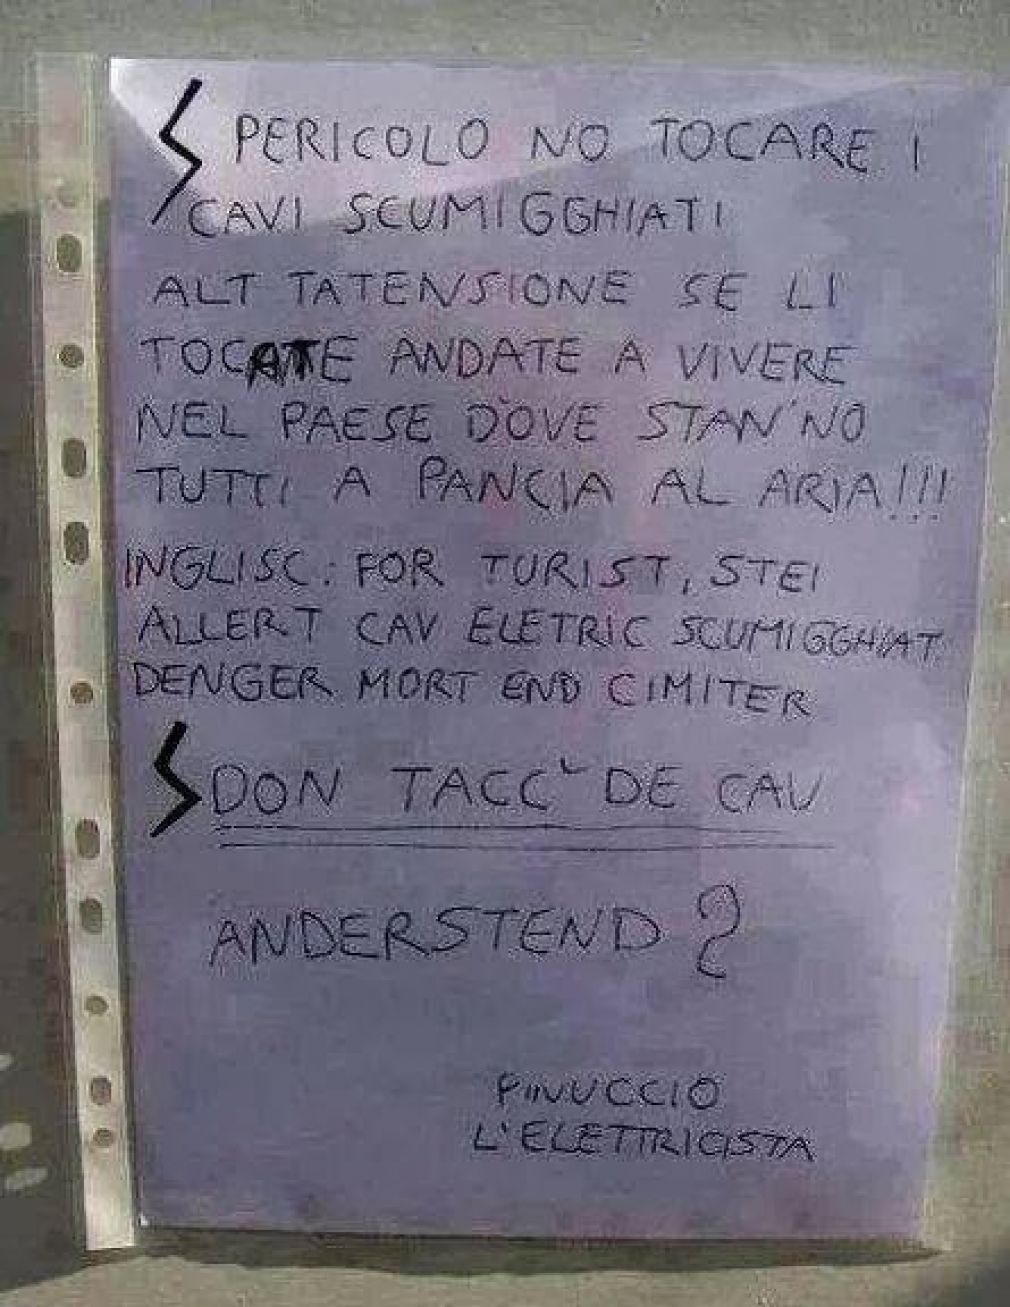 PERICOLO NO TOCARE I
CAVI SCUMIGGHIATI
ALT TATENSIONE SE LI
TOCATE ANDATE A VIVERE
NEL PAESE D'OVE STAN'NO
TUTTI A PANCIA AL ARIA!!!
INGLISC: FOR TURIST, STEI
ALLERT CAV ELETRIC SCUMIGGHIAT
DENGER MORT END CIMITER
DON TACC` DE CAV
ANDERSTEND ?
PINUCCIO
L'ELETTRICISTA